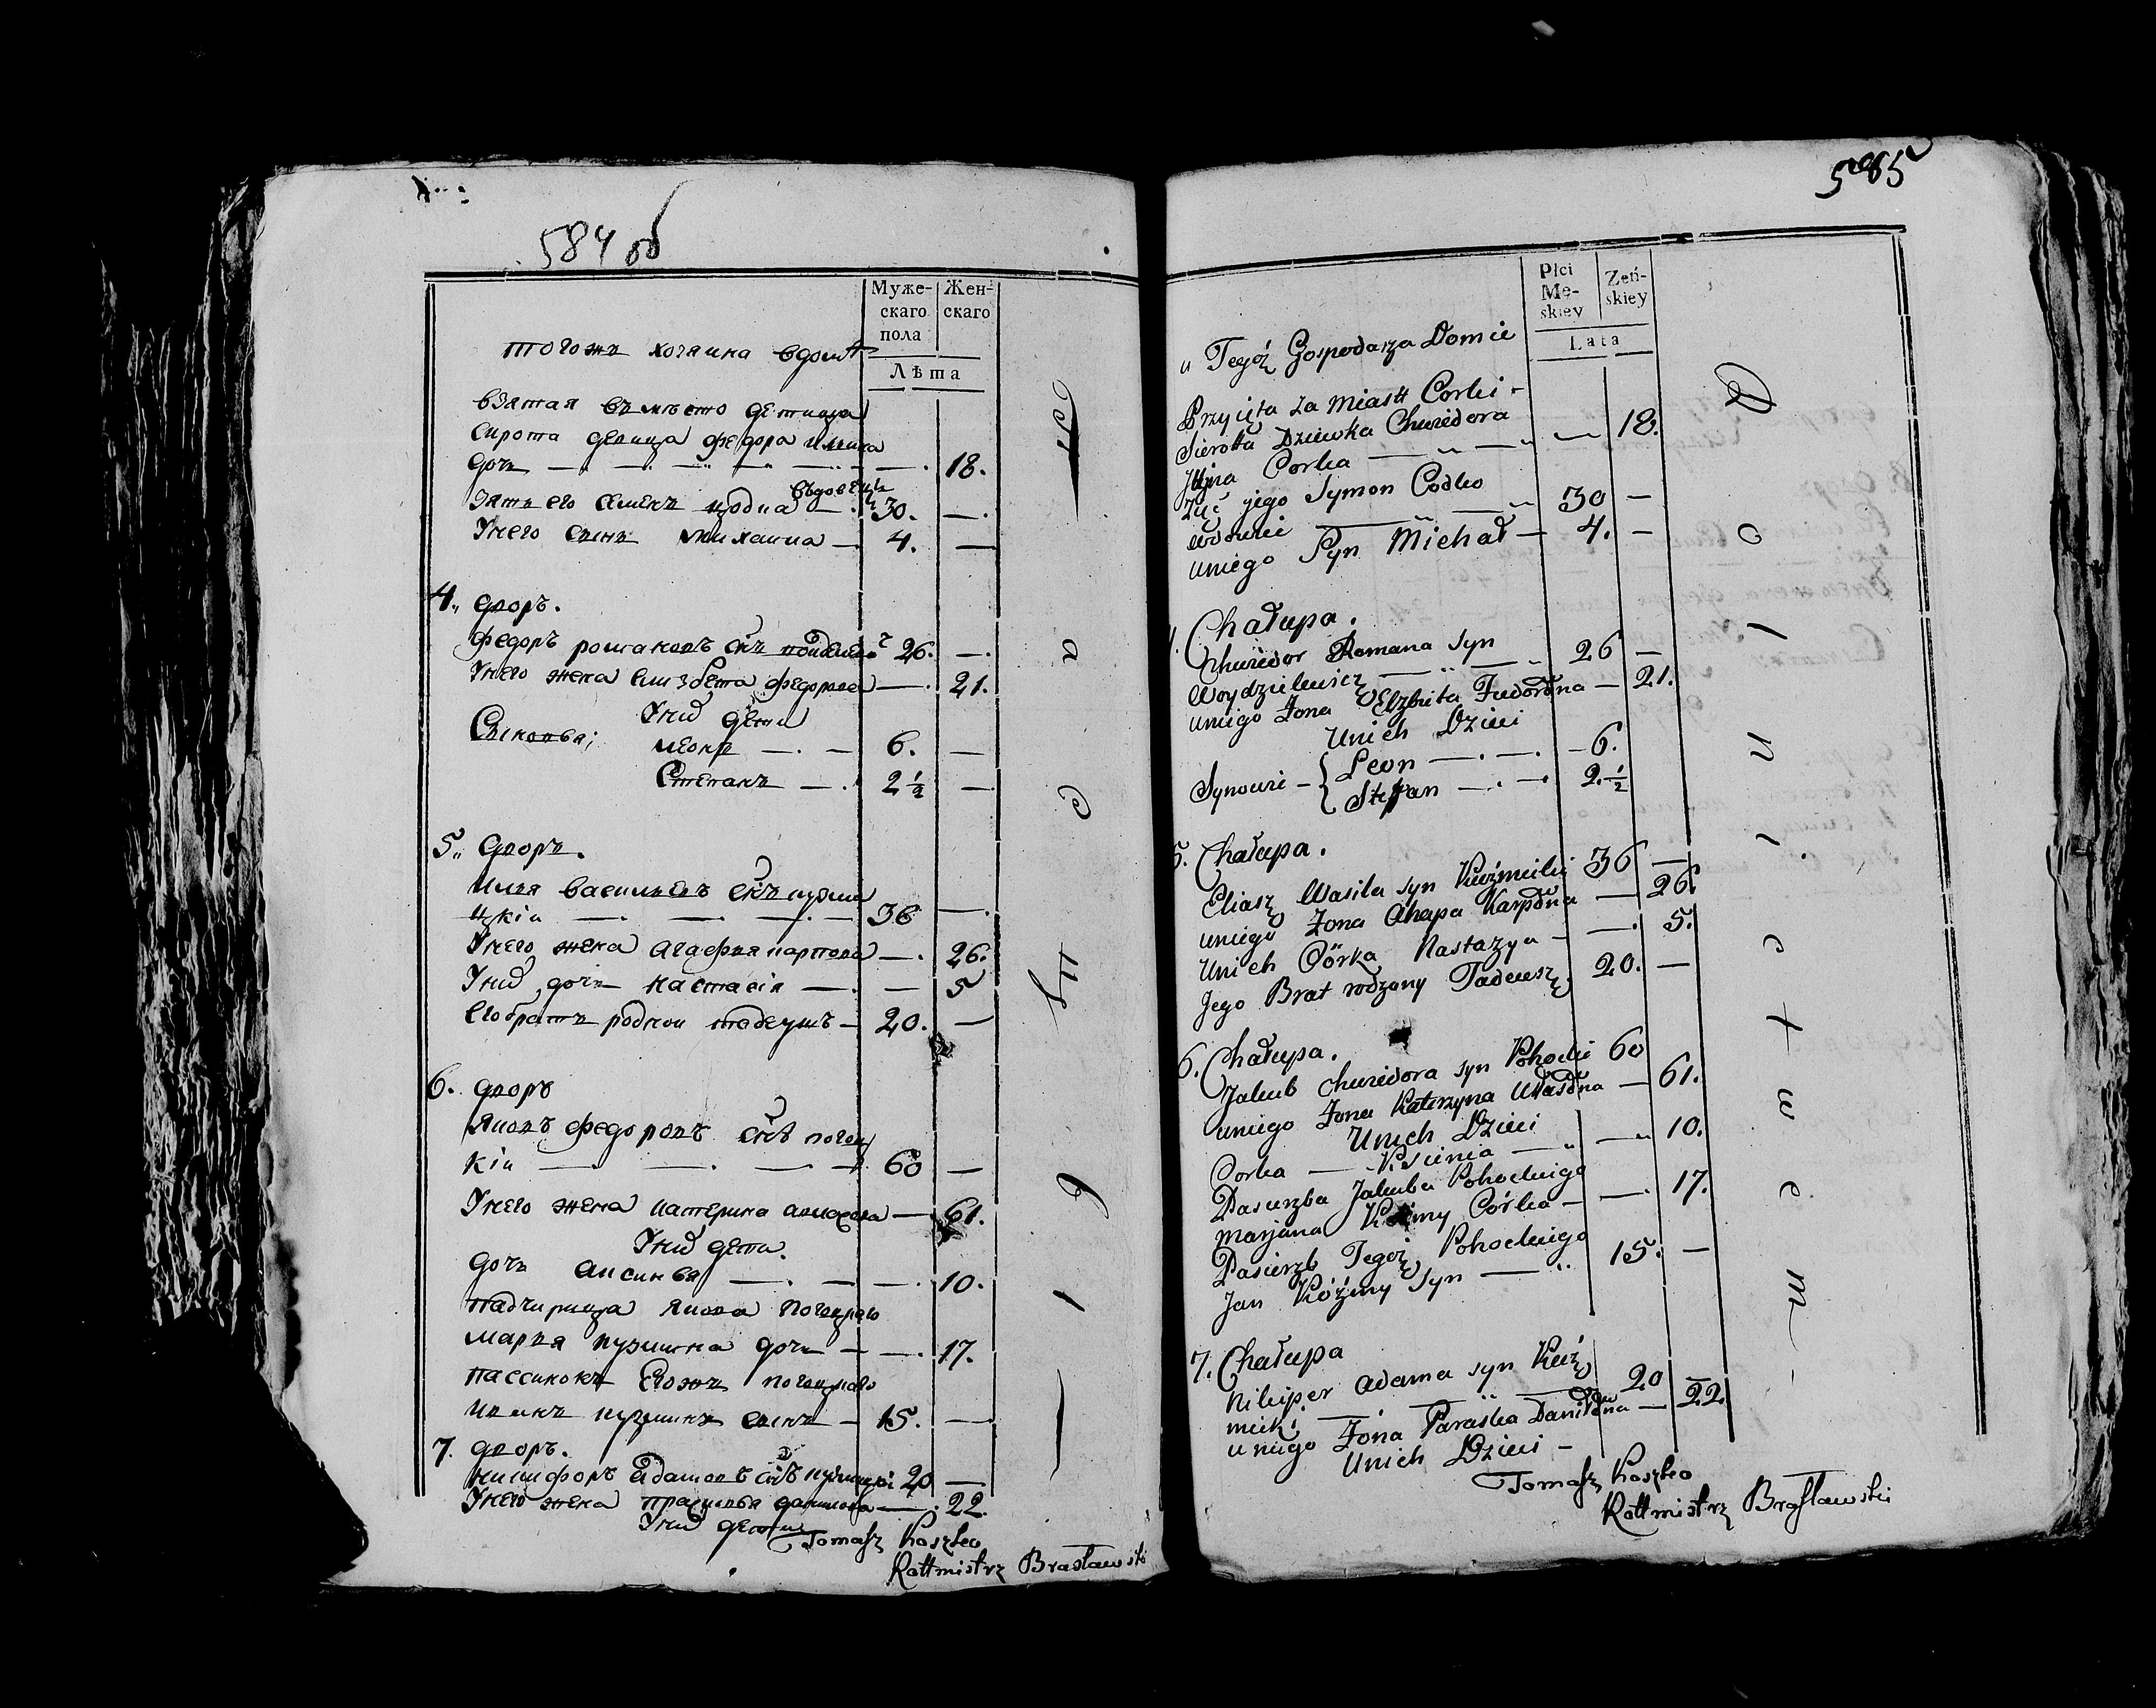 584 об
Муже-
скаго
пола
Жен-
скаго
Лѣта
тогожъ хозяина вдомѣ
взятая въмѣсто детища
сирота девица федора ильина
дочь — — — — — — 18.
зять его семенъ цодка вдовецъ — 30. —
Унего сынъ михаила — 4. —
4. дворъ.
федоръ романовъ снъ 26. —
Унего жена елизбета федорова — 21.
Унихъ дети
Сыновья; леонъ — 6. —
Степанъ — 2½ —
5. дворъ.
илья васильевъ снъ кузми
цкіи — — — 36 —
Унего жена агафия карпова — 26.
Унихъ дочь настасія — — 5
Его братъ роднои тадеушъ — 20. —
6. дворъ
Яковъ федоровъ снъ погоц
кіи — — — 60 —
Унего жена катерина — 61.
Унихъ дети.
дочь аксинья — — — 10.
падчирица якова погоцкаго
марья кузмина дочь — — 17.
пассинокъ Егожъ погоцкаго
иванъ кузминъ сынъ — 15. —
7. дворъ.
никифоръ адамовъ снъ кузмицкі 20 —
Унего жена прасковья данилова — 22.
Унихъ дети
Tomasz Koszko
Rottmistrz Brasławski
585
Płci
Mę-
skiey
Zeń-
skiey
Lata
u Tegoż Gospodarza Domie
Przyięta za miast Corki -
Sierotta Dziewka Chwiedora
Iljna Corka — — — 18.
Zięć jego Symon Codko
wdowiec — — 30 —
uniego Syn Michał — 4. —
4. Chałupa.
Chwiedor Romana syn
Woydzilewicz — — 26 —
uniego Żona Elzbieta Fiedorówna — 21.
Unich Dzieci
Synowie — { Leon — — 6.
Stefan — — 2.½
5. Chałupa.
Eliasz Wasila syn Kuźmicki 36 —
uniego Żona Ahapa Karpówna — 26
Unich Córka Nastazya — — 5.
Jego Brat rodzony Tadeusz 20. —
6. Chałupa.
Jakub Chwiedora syn Pohocki 60
uniego Żona Katerzyna — 61.
Unich Dzieci
Corka — Ksienia — — 10.
Pasierzba Jakuba Pohockiego
Marjana Kuźmy Córka — — 17.
Pasierzb Tegoż Pohockiego
Jan Kóźmy Syn — 15. —
7. Chałupa
Nikiper Adama syn Kuź
micki — — — 20 —
uniego Żona Paraska Daniłówna — 22
Unich Dzieci —
Tomasz Koszko
Rottmistrz Brasławski